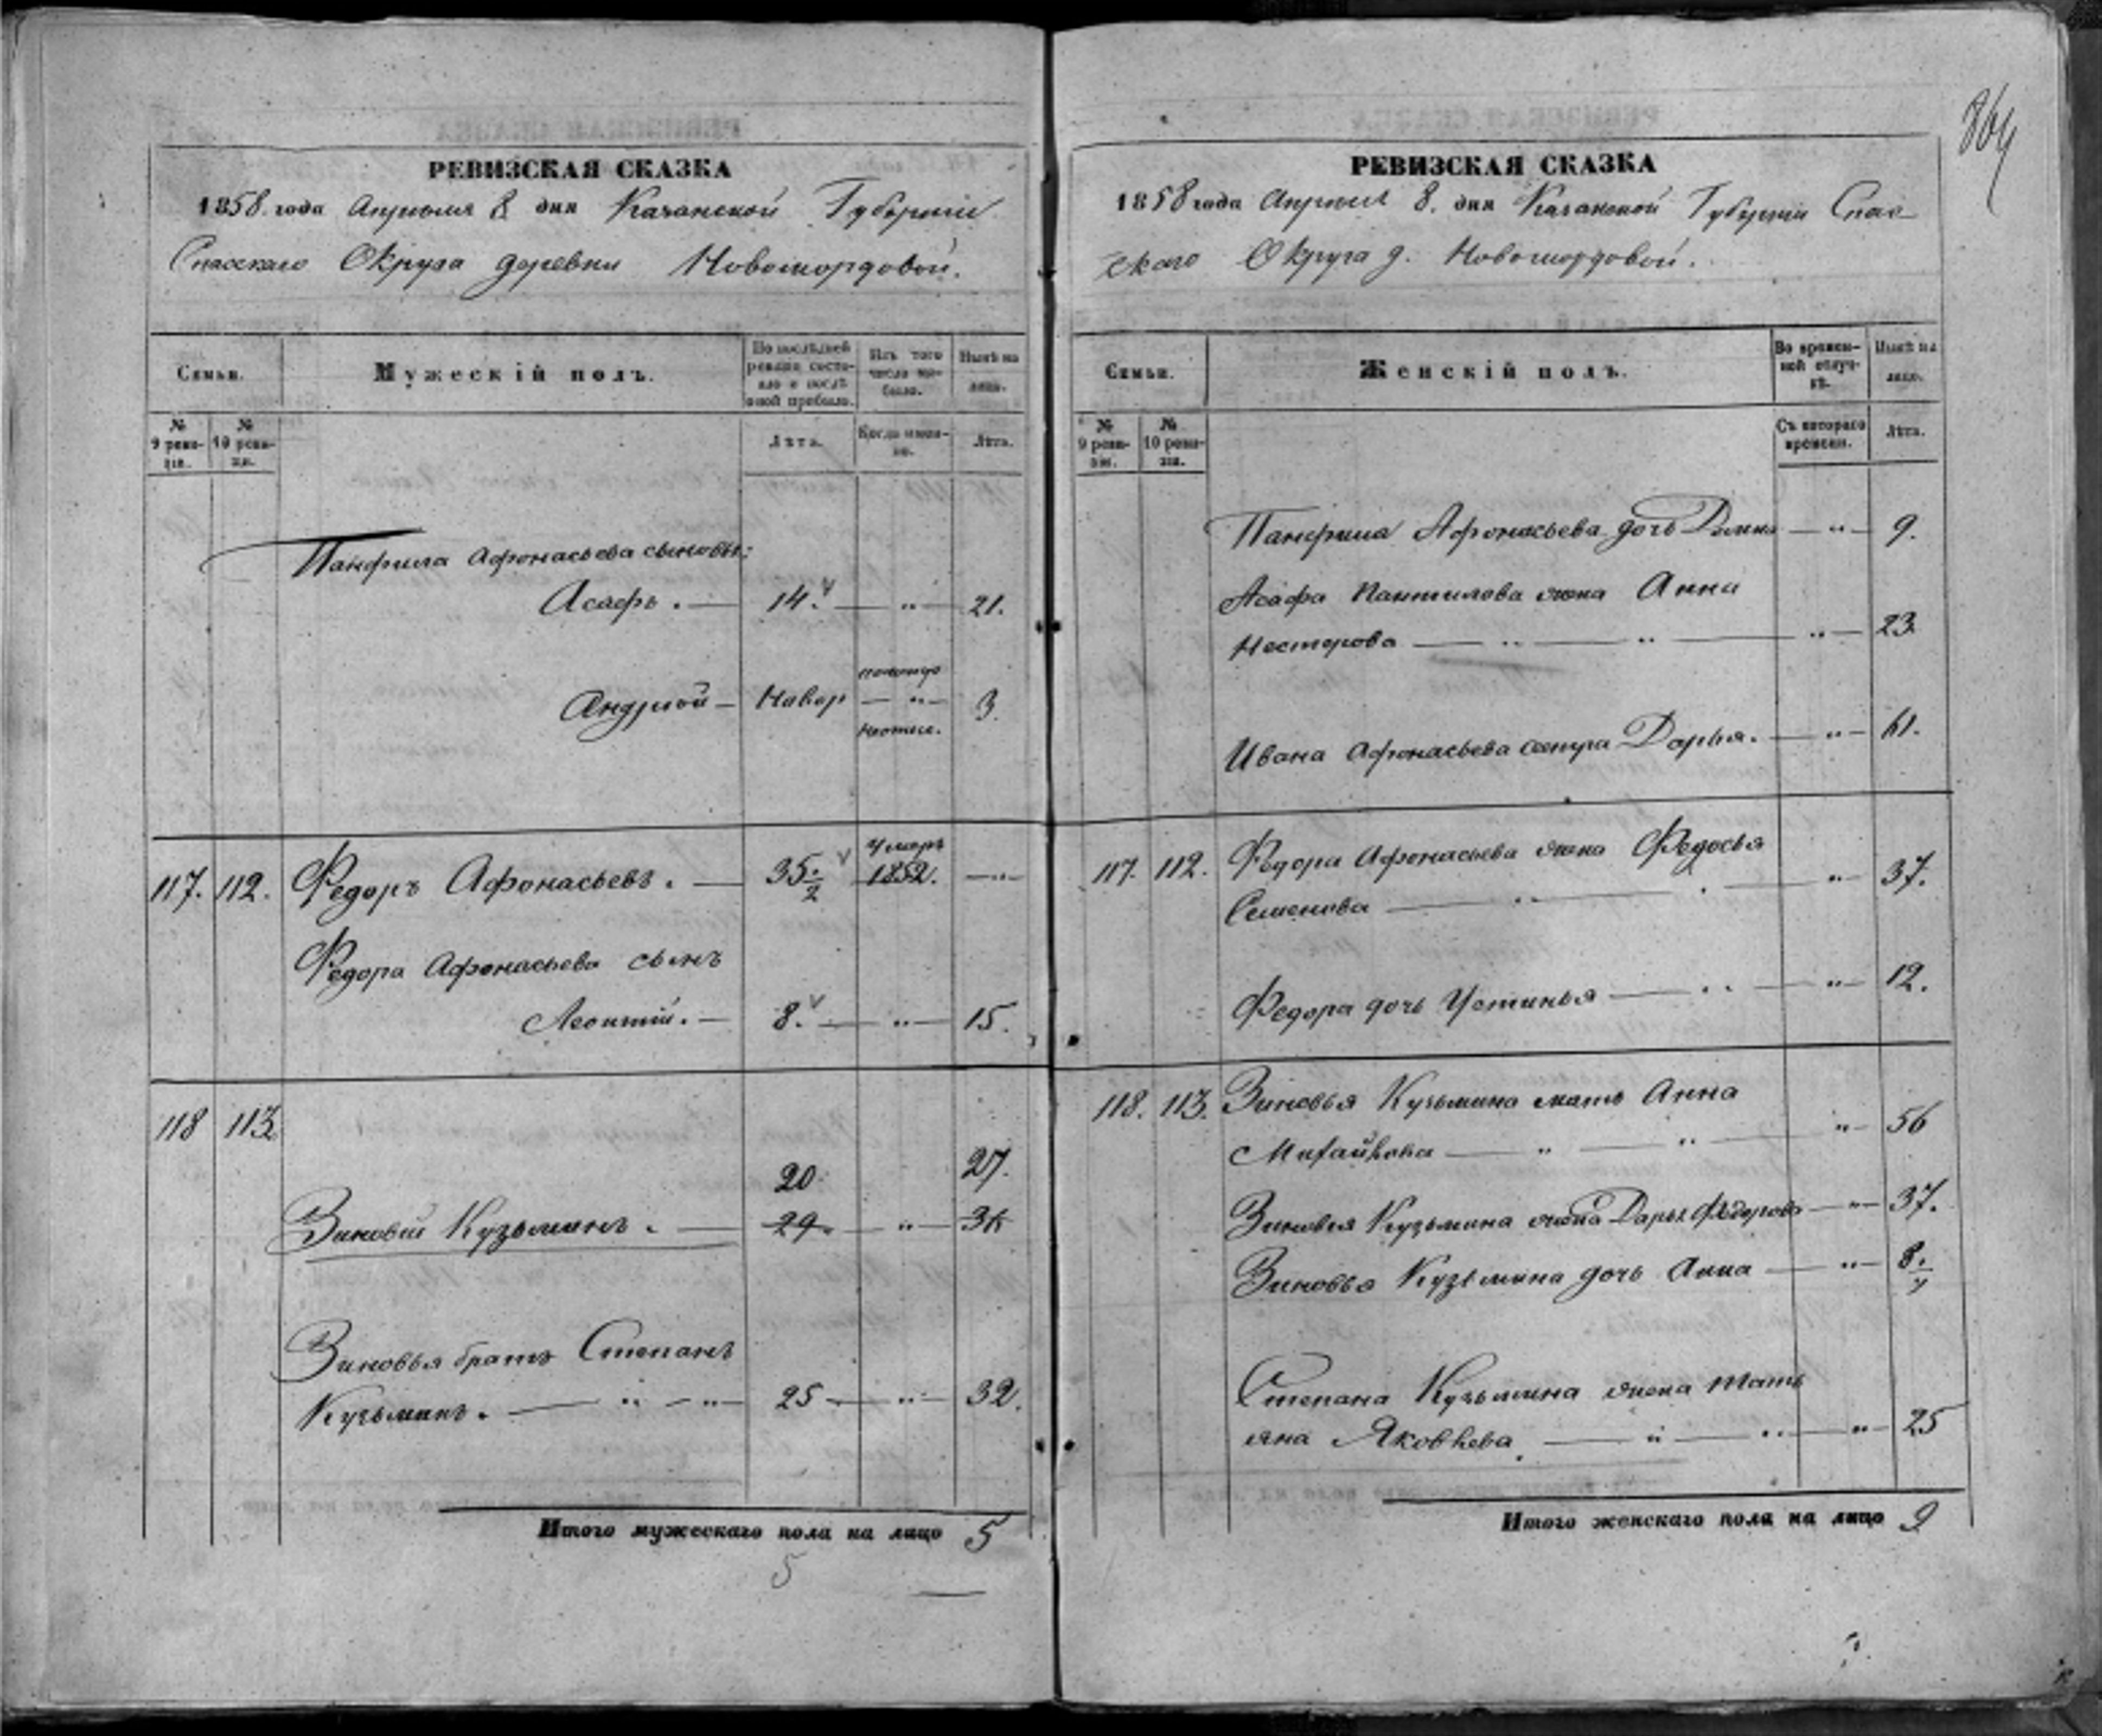 864
РЕВИЗСКАЯ СКАЗКА
1858 года Апреля 8 дня Казанской Губернии
Спасскаго Округа деревни Новомордовой.
Семьи.
Мужескій полъ.
По послѣдней ревизіи состояло и послѣ оной прибыло.
Изъ того числа выбыло.
Нынѣ на лицо.
№ 9 ревизіи.
№ 10 ревизіи.
Лѣта.
Когда именно.
Лѣта.
Панфила Афонасьева сыновья:
Асафъ. — 14. — „ — 21.
Андрей — — „ — 3.
117. 112. Федоръ Афонасьевъ. — 35. 2 Умеръ 1852. — „ —
Федора Афонасьева сынъ
Леонтій. — 8. — „ — 15.
118 113.
20 27.
Зиновій Кузьминъ. — 29. — „ — 36
Зиновья братъ Степанъ
Кузьминъ. — „ — „ — 25 — „ — 32.
Итого мужескаго пола на лицо 5
5
РЕВИЗСКАЯ СКАЗКА
1858 года Апреля 8. дня Казанской Губернии Спас-
скаго Округа д. Новомордовой.
Семьи.
Женскій полъ.
Во временной отлучкѣ.
Нынѣ на лицо.
№ 9 ревизіи.
№ 10 ревизіи.
Съ котораго времени.
Лѣта.
Панфила Афонасьева дочь Домна — „ — 9.
Асафа Панфилова жена Анна
Нестерова — „ — „ — „ — 23.
Ивана Афонасьева сестра Дарья. — „ — 61.
117. 112. Федора Афонасьева жена Федосья
Семенова — „ — „ — 37.
Федора дочь Устинья — „ — „ — 12.
118. 113. Зиновья Кузьмина мать Анна
Михайлова — „ — „ — „ — 56
Зиновья Кузьмина жена Дарья Федорова — „ — 37.
Зиновья Кузьмина дочь Анна — „ — 8.
Степана Кузьмина жена Тать
яна Яковлева — „ — „ — „ — 25
Итого женскаго пола на лицо 9